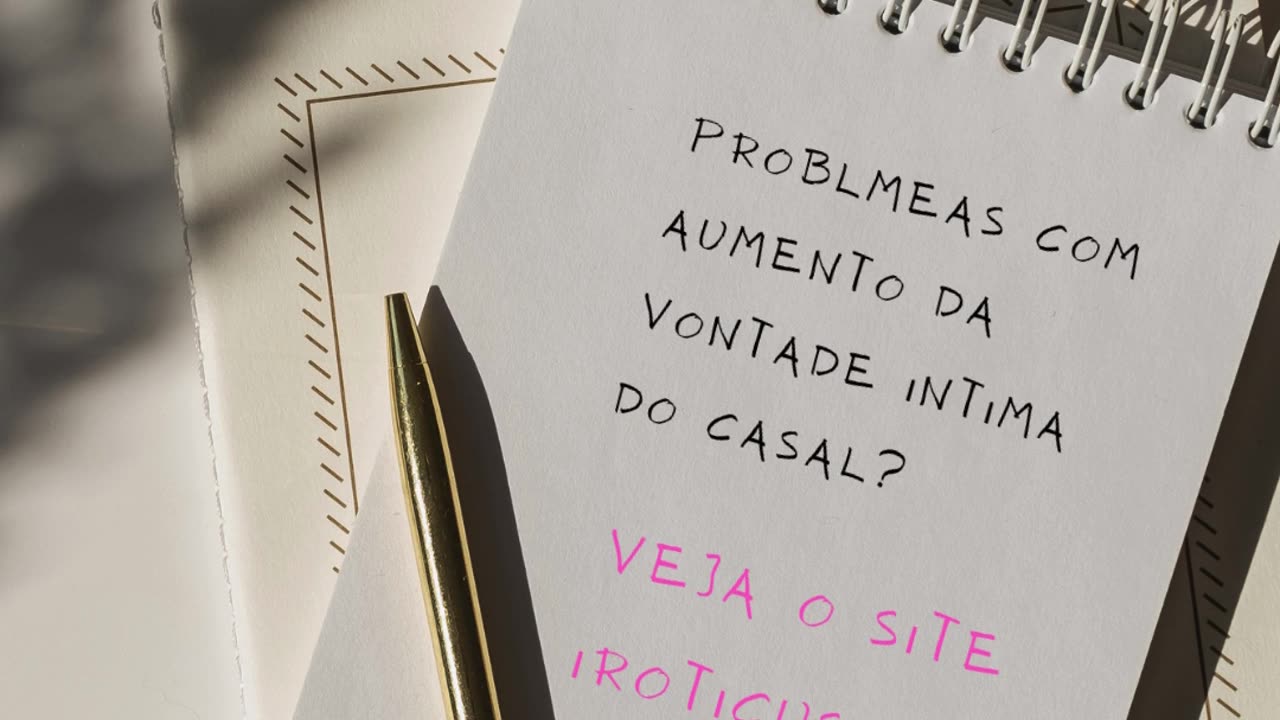 PROBLMEAS COM
AUMENTO DA
VONTADE INTIMA
DO CASAL?
VEJA O SITE
IROTICUS